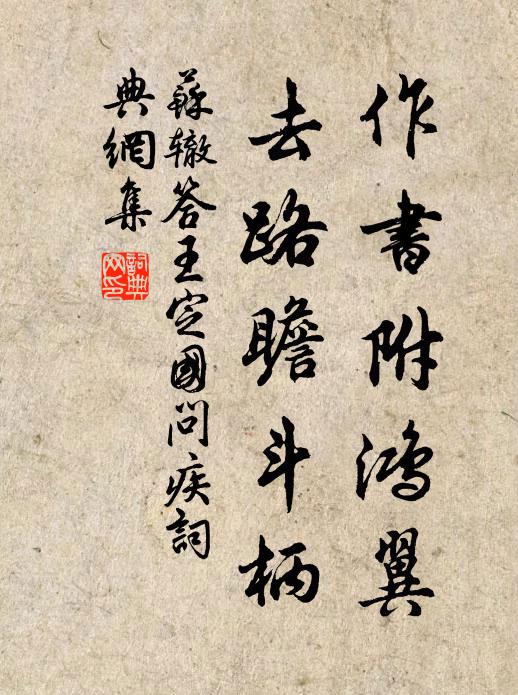 作書附鴻翼
去路瞻斗柄
蘇辙答王定國問疾詞
典網集
詞典網印